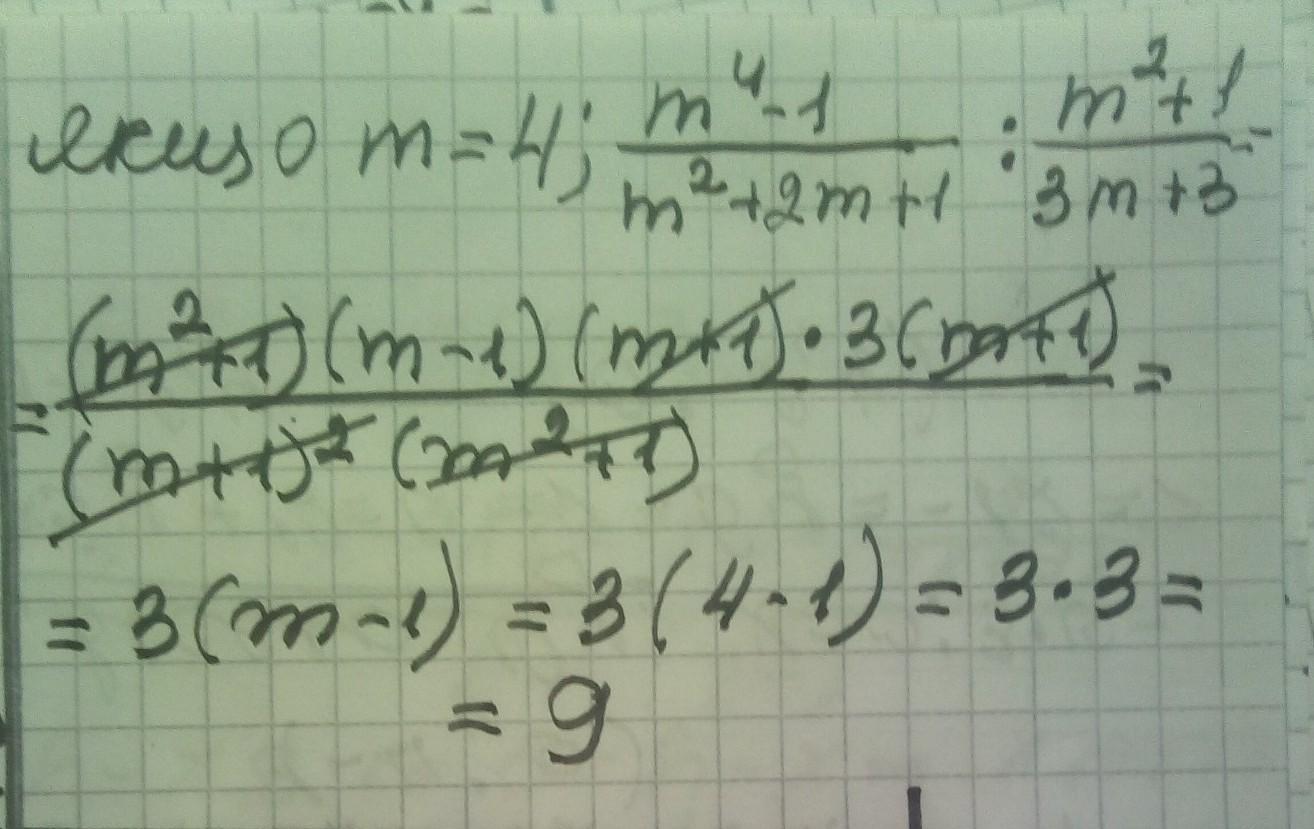 якщо m = 4; (m⁴ - 1)/(m² + 2m + 1) : (m² + 1)/(3m + 3) =
= ((m² + 1)(m - 1)(m + 1) · 3(m + 1))/((m + 1)² (m² + 1)) =
= 3(m - 1) = 3(4 - 1) = 3 · 3 =
= 9